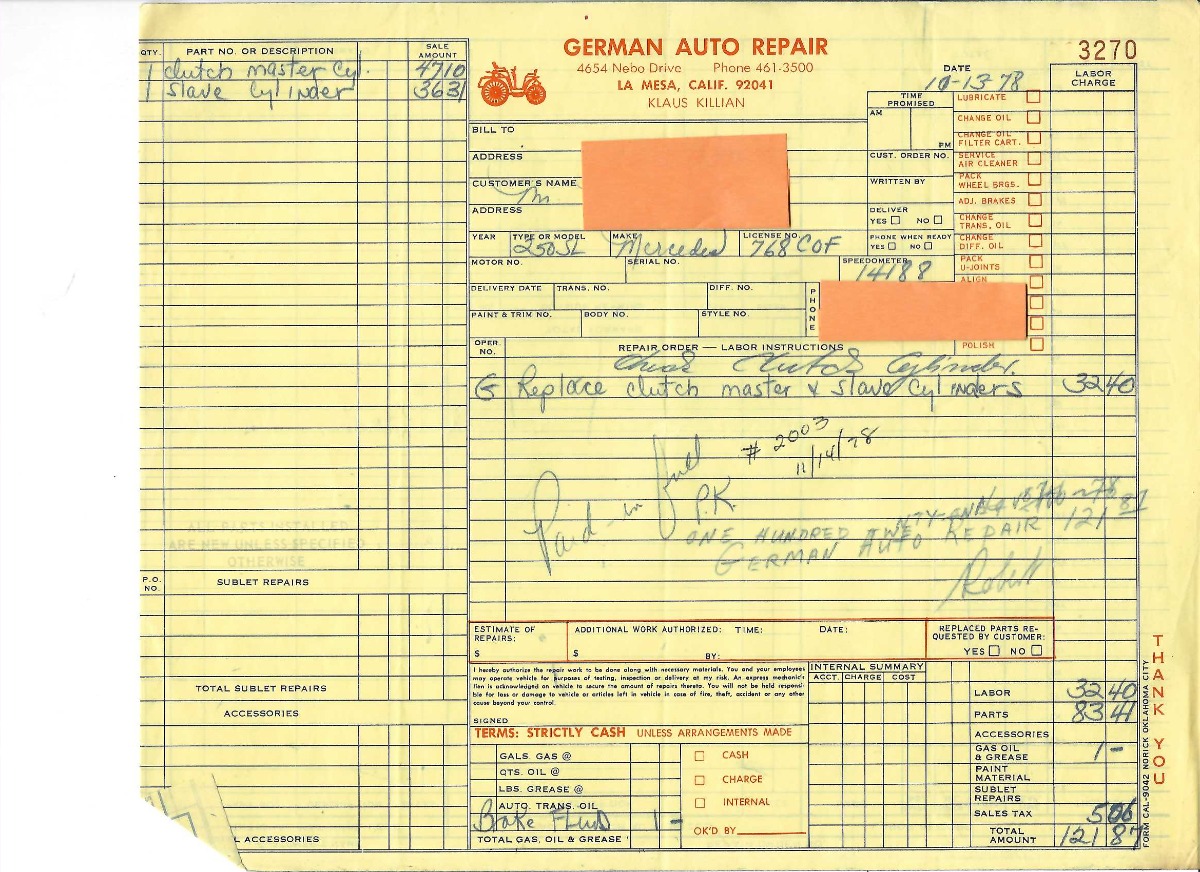 GERMAN AUTO REPAIR
4654 Nebo Drive Phone 461-3500
LA MESA, CALIF. 92041
KLAUS KILLIAN
3270
DATE
10-13 78
LABOR CHARGE
QTY. PART NO. OR DESCRIPTION SALE AMOUNT
1 clutch master Cyl. 4710
1 Slave Cylinder 3631
TIME PROMISED
AM
PM
LUBRICATE
CHANGE OIL
CHANGE OIL FILTER CART.
SERVICE AIR CLEANER
PACK WHEEL BRGS.
ADJ. BRAKES
CHANGE TRANS. OIL
CHANGE DIFF. OIL
PACK U-JOINTS
ALIGN
POLISH
BILL TO
ADDRESS
CUSTOMER'S NAME
ADDRESS
CUST. ORDER NO.
WRITTEN BY
DELIVER
YES NO
PHONE WHEN READY
YES NO
YEAR TYPE OR MODEL MAKE LICENSE NO.
250SL Mercedes 768 COF
MOTOR NO. SERIAL NO. SPEEDOMETER
14188
DELIVERY DATE TRANS. NO. DIFF. NO. PHONE
PAINT & TRIM NO. BODY NO. STYLE NO.
OPER. NO. REPAIR ORDER — LABOR INSTRUCTIONS
Check Clutch Cylinder.
G Replace clutch master & Slave Cylinders 3240
Paid in full # 2003
11/14/78
P.K.
ONE HUNDRED TWENTY-ONE 121 87
GERMAN AUTO REPAIR
Robert
ALL PARTS INSTALLED
ARE NEW UNLESS SPECIFIED
OTHERWISE
P.O. NO. SUBLET REPAIRS
TOTAL SUBLET REPAIRS
ACCESSORIES
L ACCESSORIES
ESTIMATE OF REPAIRS: $
ADDITIONAL WORK AUTHORIZED: TIME: DATE:
$ BY:
REPLACED PARTS REQUESTED BY CUSTOMER:
YES NO
I hereby authorize the repair work to be done along with necessary materials. You and your employees
may operate vehicle for purposes of testing, inspection or delivery at my risk. An express mechanic's
lien is acknowledged on vehicle to secure the amount of repairs thereto. You will not be held responsi-
ble for loss or damage to vehicle or articles left in vehicle in case of fire, theft, accident or any other
cause beyond your control.
SIGNED
TERMS: STRICTLY CASH UNLESS ARRANGEMENTS MADE
GALS. GAS @
QTS. OIL @
LBS. GREASE @
AUTO. TRANS. OIL
Brake Fluid 1 -
TOTAL GAS, OIL & GREASE
CASH
CHARGE
INTERNAL
OK'D BY
INTERNAL SUMMARY
ACCT. CHARGE COST
LABOR 3240
PARTS 8341
ACCESSORIES
GAS OIL & GREASE 1 -
PAINT MATERIAL
SUBLET REPAIRS
SALES TAX 506
TOTAL AMOUNT 12187
THANK YOU
FORM CAL-9042 NORICK OKLAHOMA CITY